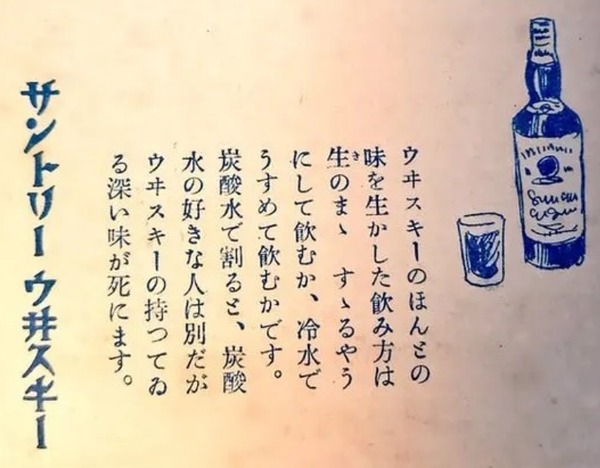 ウヰスキーのほんとの
味を生かした飲み方は
生のまゝ すゝるやう
にして飲むか、冷水で
うすめて飲むかです。
炭酸水で割ると、炭酸
水の好きな人は別だが
ウヰスキーの持つてゐ
る深い味が死にます。
サントリーウ井スキー